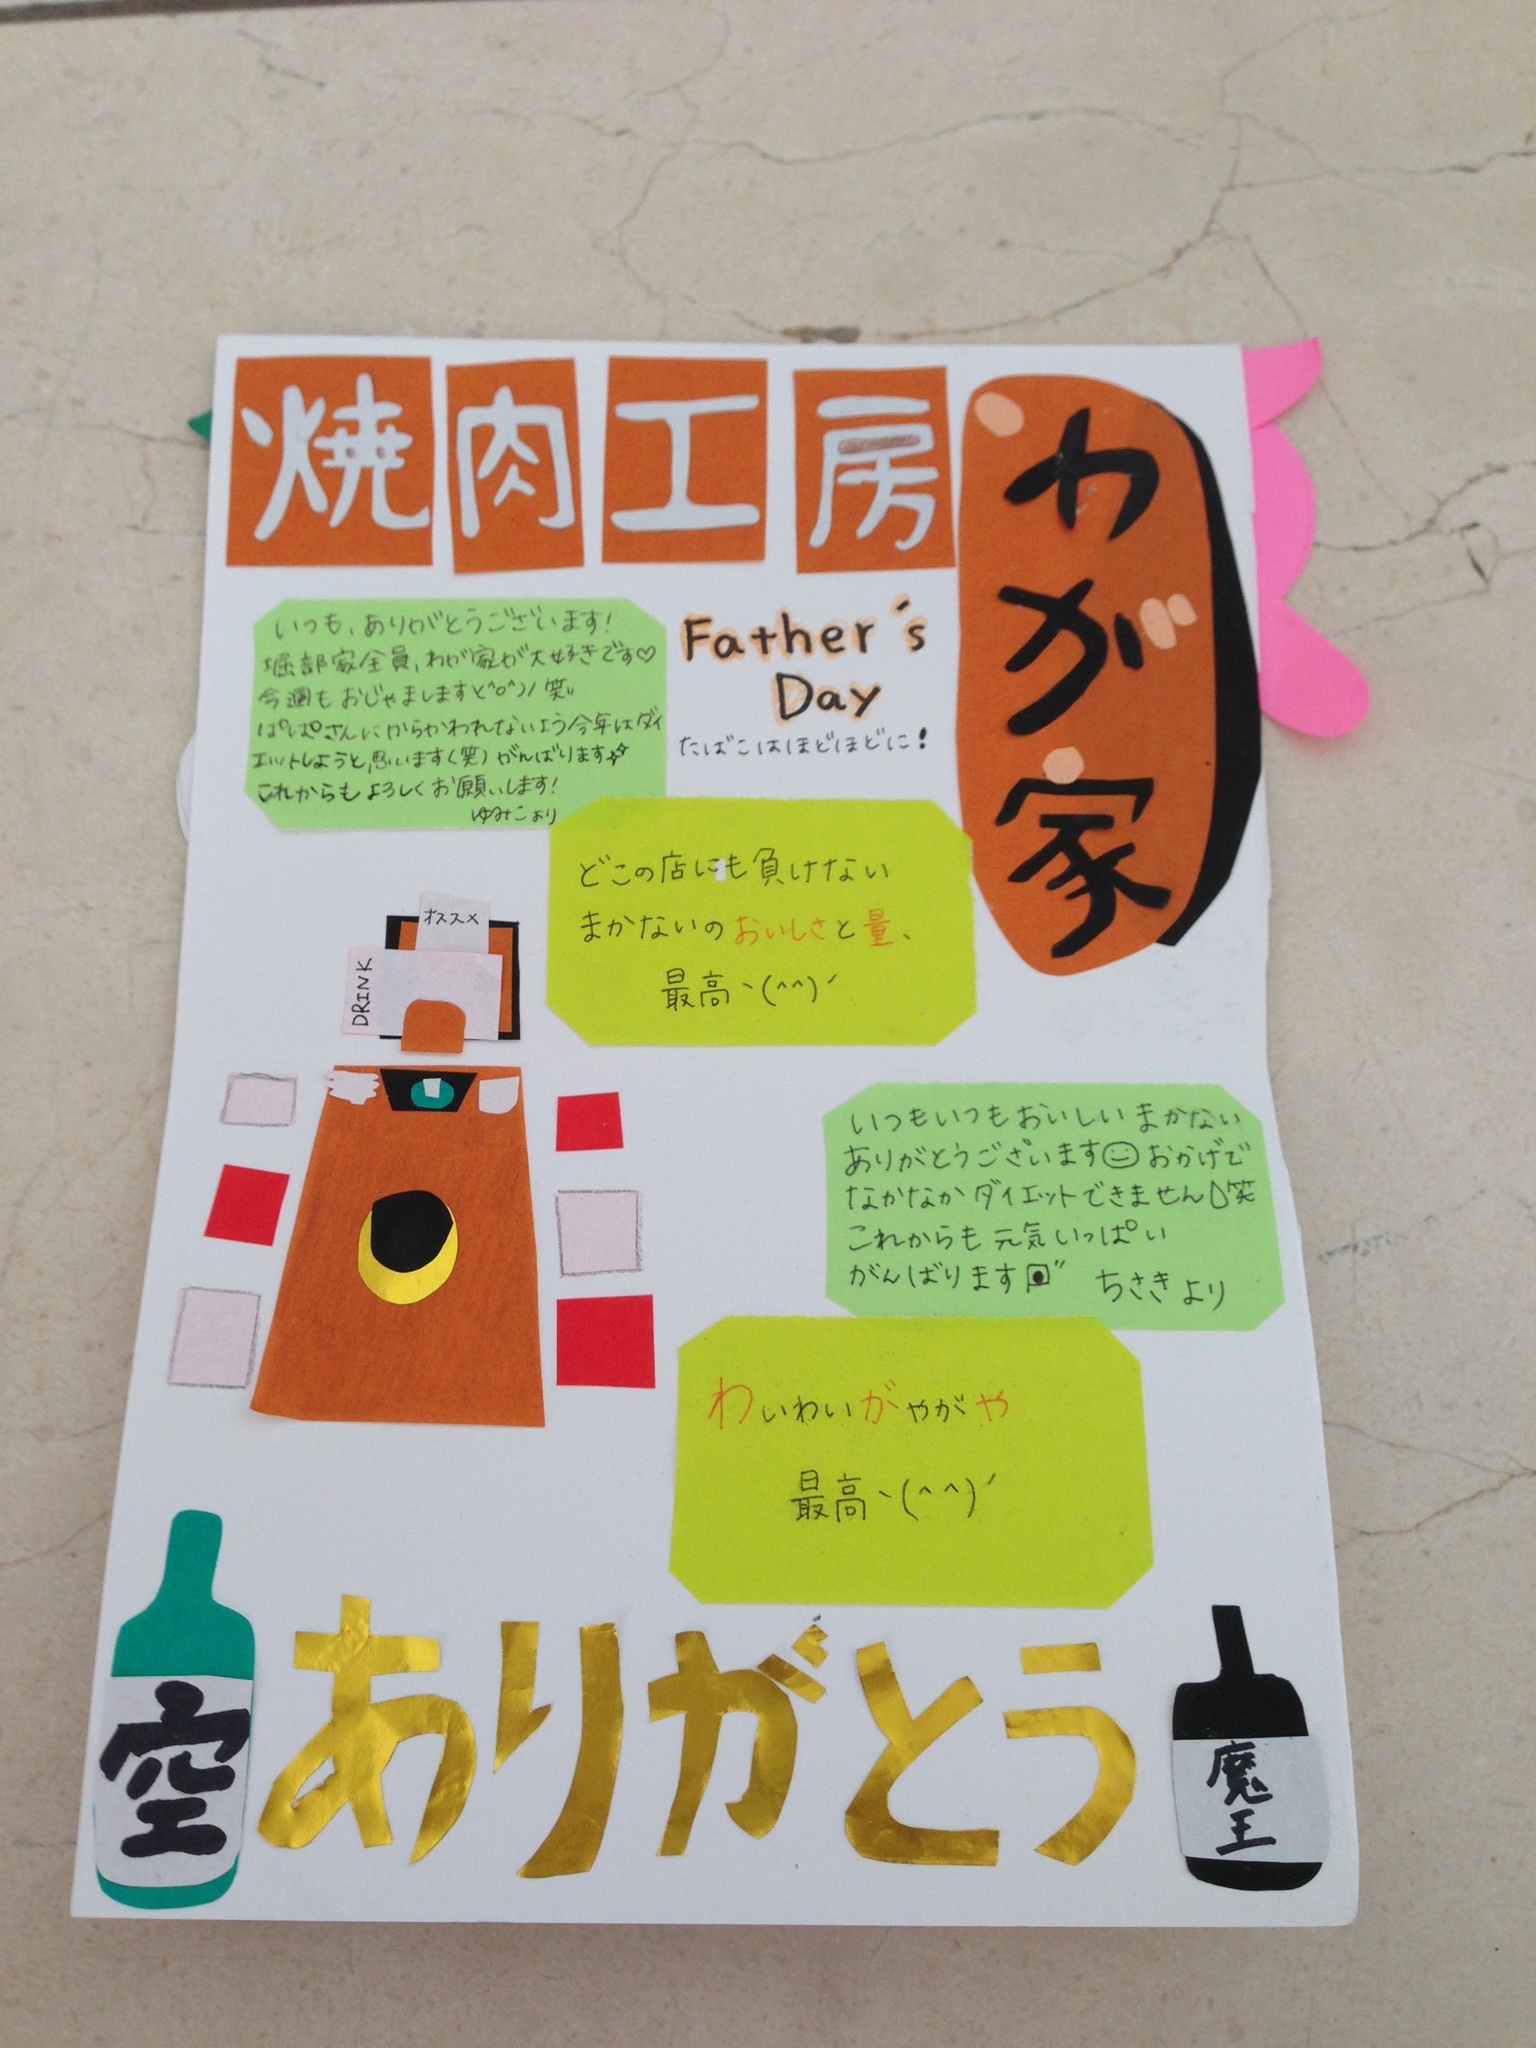 焼肉工房
わが家
いつも、ありがとうございます!
堀部家全員、わが家が大好きです♡
今週もおじゃましますと^o^)ノ笑
ぱぱさんにからかわれないよう今年はダイ
エットしようと思います(笑)がんばります
これからもよろしくお願いします!
ゆみこより
Father's
Day
たばこはほどほどに!
どこの店にも負けない
まかないのおいしさと量、
最高ヽ(^^)ノ
オススメ
DRINK
いつもいつもおいしいまかない
ありがとうございます☺おかげで
なかなかダイエットできません笑
これからも元気いっぱい
がんばります
ちさきより
わいわいがやがや
最高ヽ(^^)ノ
ありがとう
空
魔王